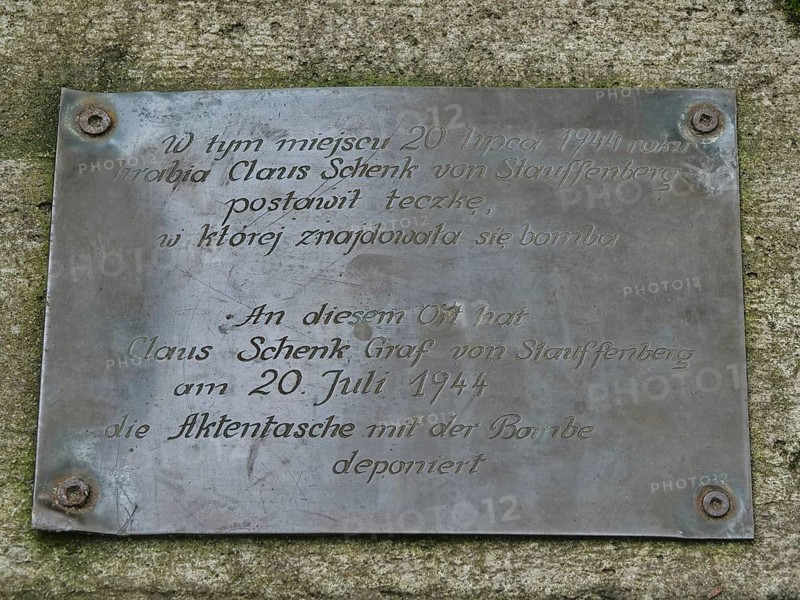 W tym miejscu 20 lipca 1944 roku
hrabia Claus Schenk von Stauffenberg
postawił teczkę,
w której znajdowała się bomba
An diesem Ort hat
Claus Schenk Graf von Stauffenberg
am 20. Juli 1944
die Aktentasche mit der Bombe
deponiert
PHOTO12